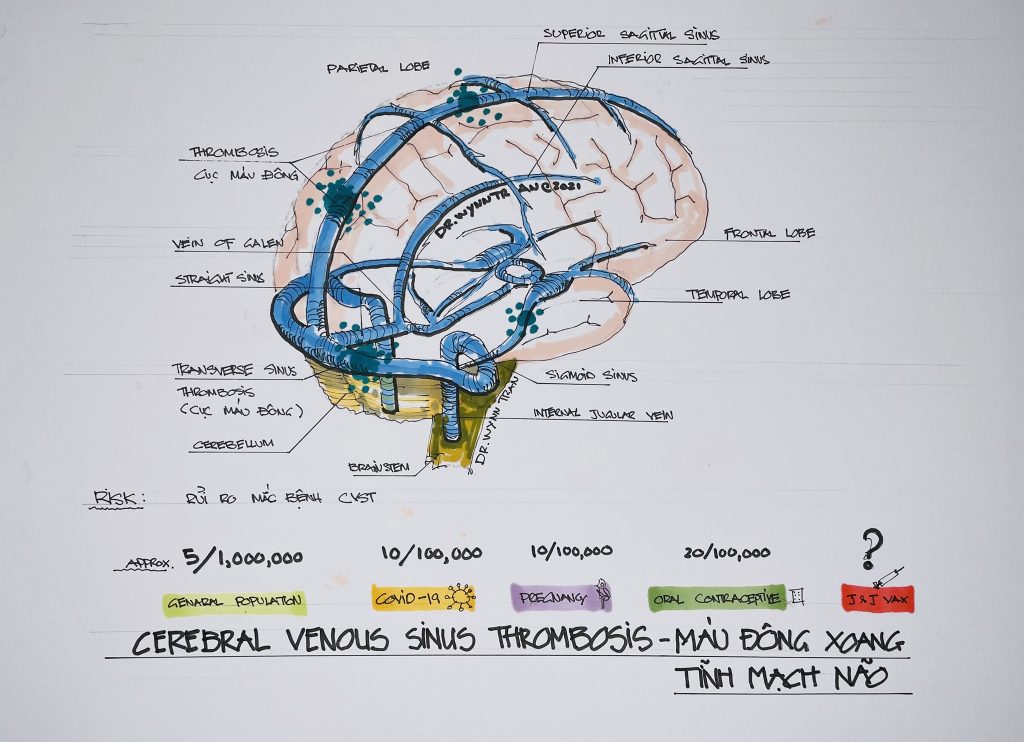 SUPERIOR SAGITTAL SINUS
INFERIOR SAGITTAL SINUS
PARIETAL LOBE
THROMBOSIS
CỤC MÁU ĐÔNG
DR. WYNN TRAN ©2021
VEIN OF GALEN
FRONTAL LOBE
STRAIGHT SINUS
TEMPORAL LOBE
TRANSVERSE SINUS
SIGMOID SINUS
THROMBOSIS
(CỤC MÁU ĐÔNG)
INTERNAL JUGULAR VEIN
DR. WYNN TRAN
CEREBELLUM
BRAINSTEM
RISK: RỦI RO MẮC BỆNH CVST
APPROX. 5/1,000,000 10/100,000 10/100,000 20/100,000 ?
GENARAL POPULATION COVID-19 PREGNANCY ORAL CONTRACEPTIVE J&J VAX
CEREBRAL VENOUS SINUS THROMBOSIS - MÁU ĐÔNG XOANG
TĨNH MẠCH NÃO